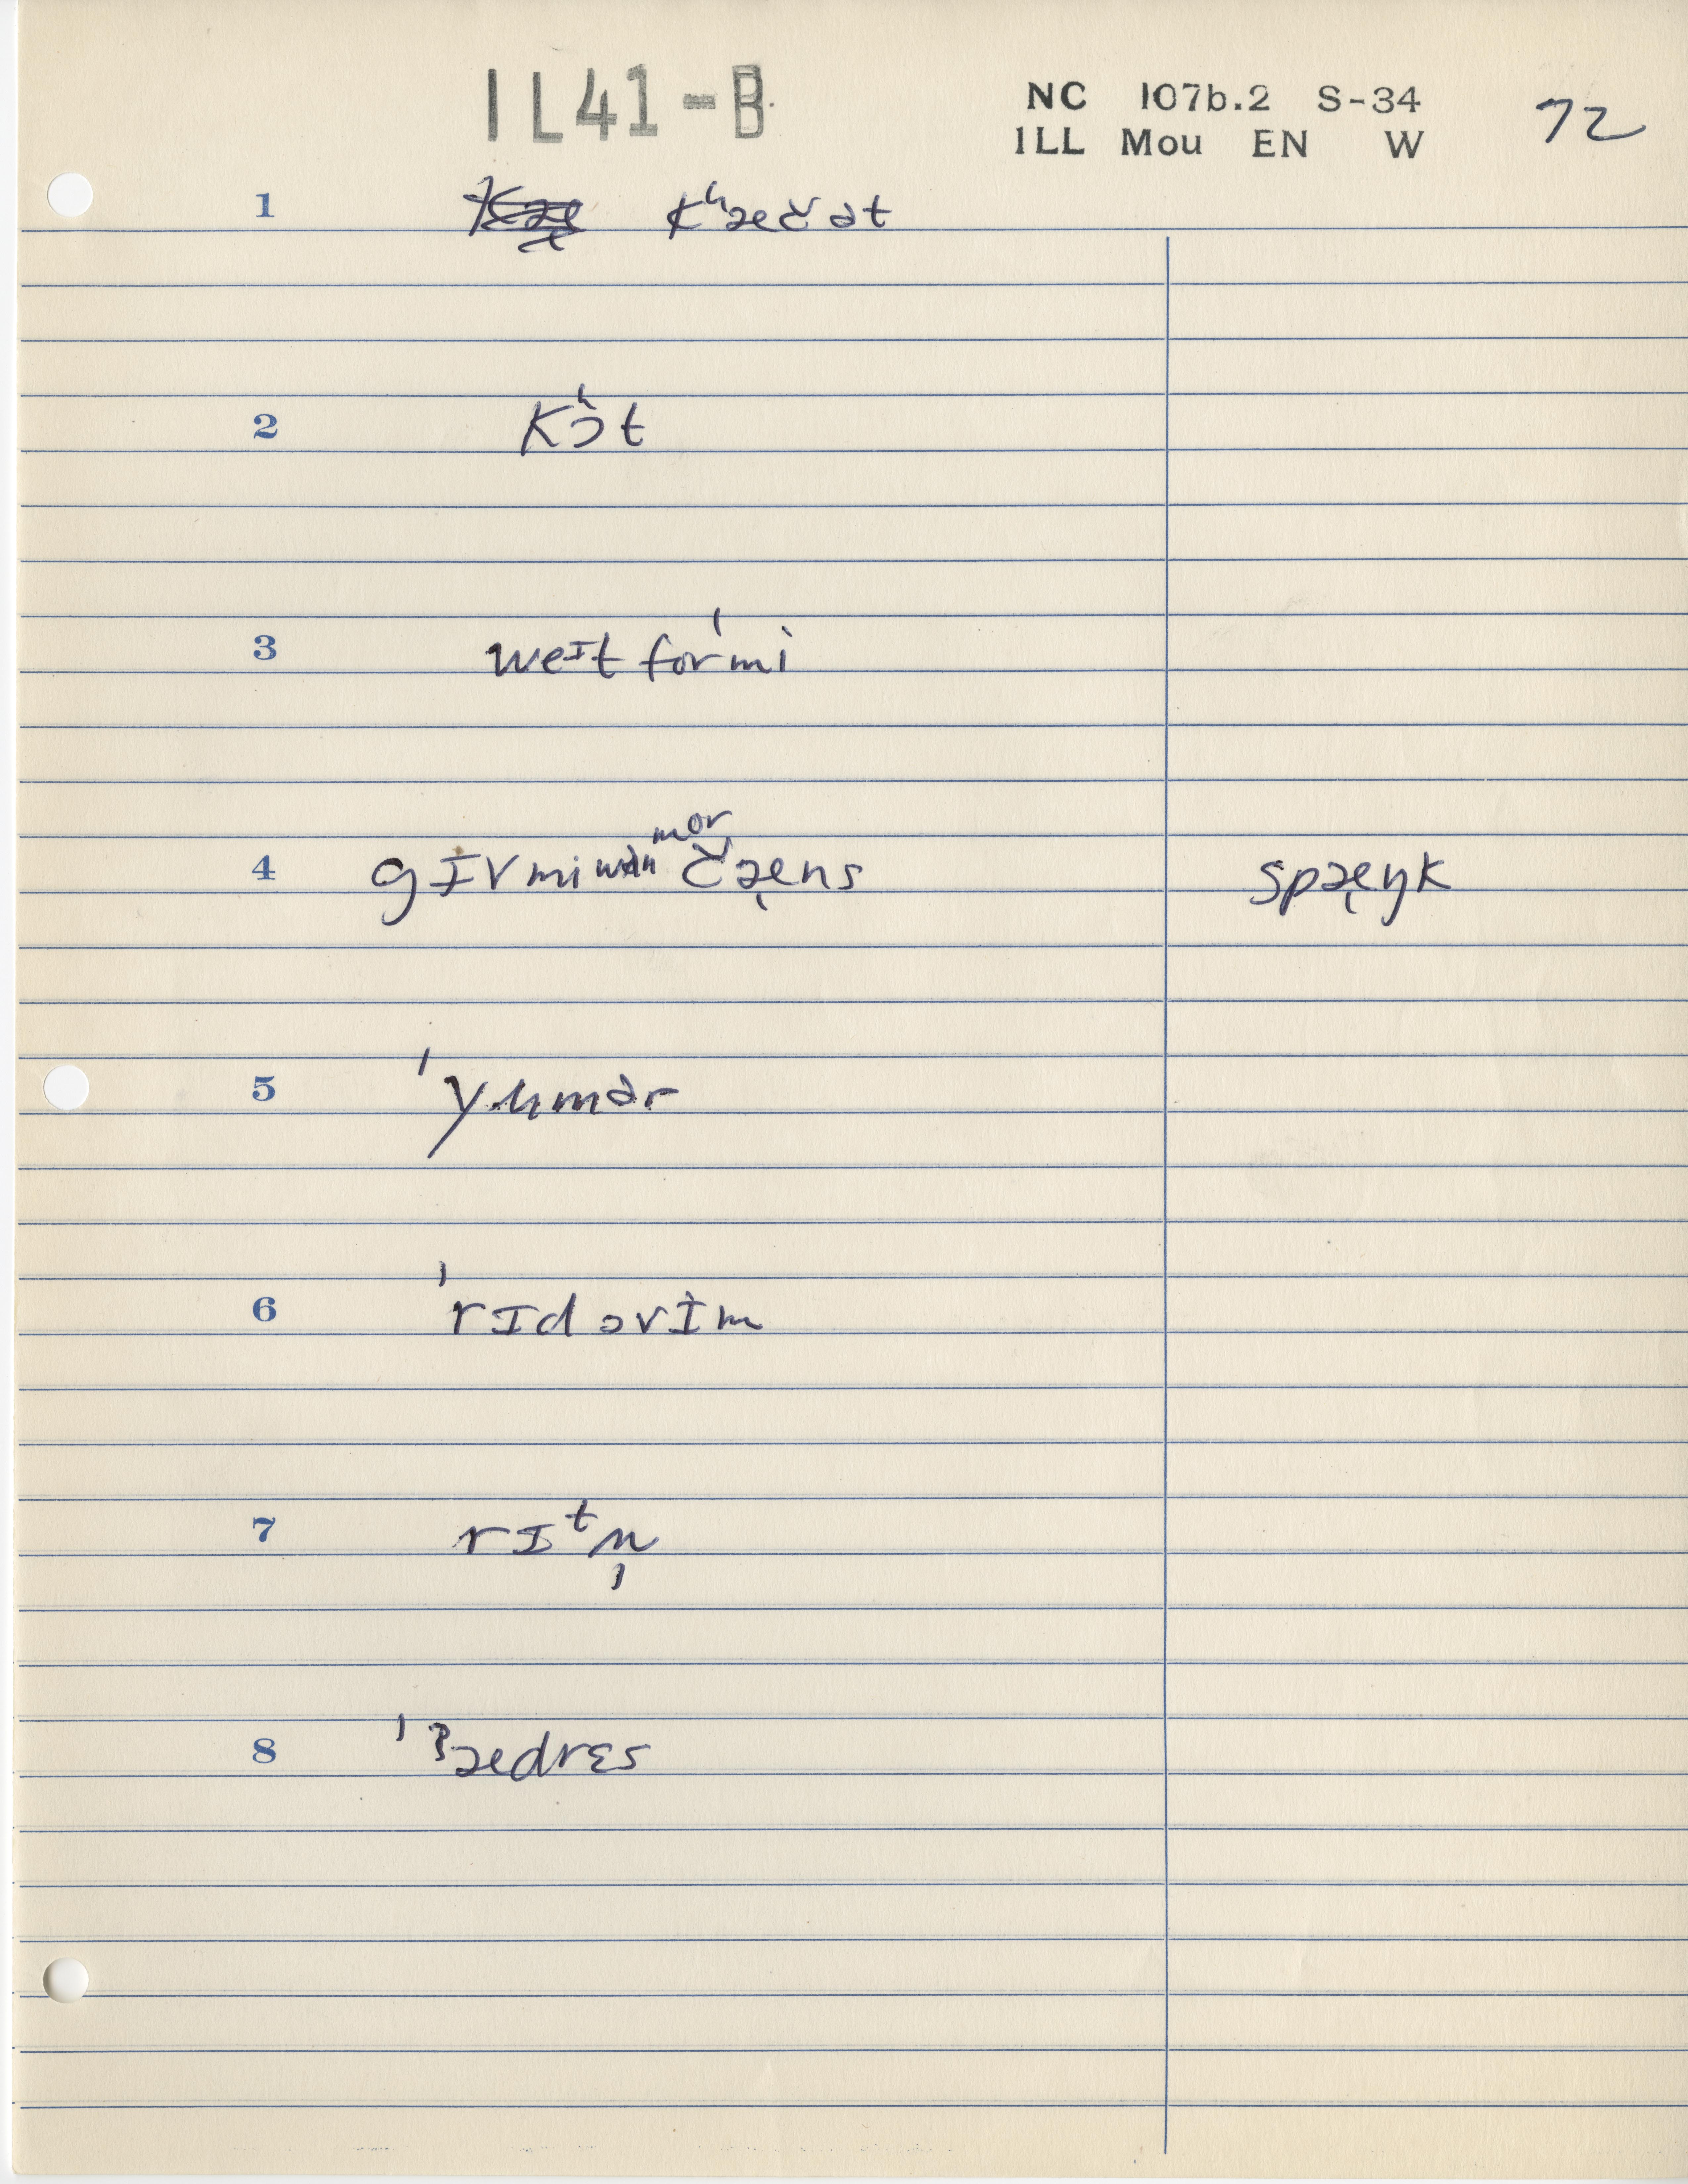 IL41-B
NC 107b.2 S-34
ILL Mou EN W
72
1 kʰæčət
2 kʰɔt
3 weɪt forˈmi
4 gɪv mi wən mor čæ̨ns spæ̨ŋk
5 ˈyumər
6 ˈrɪd əv ɪm
7 rɪᵗn̩
8 ˈʔædrɛs